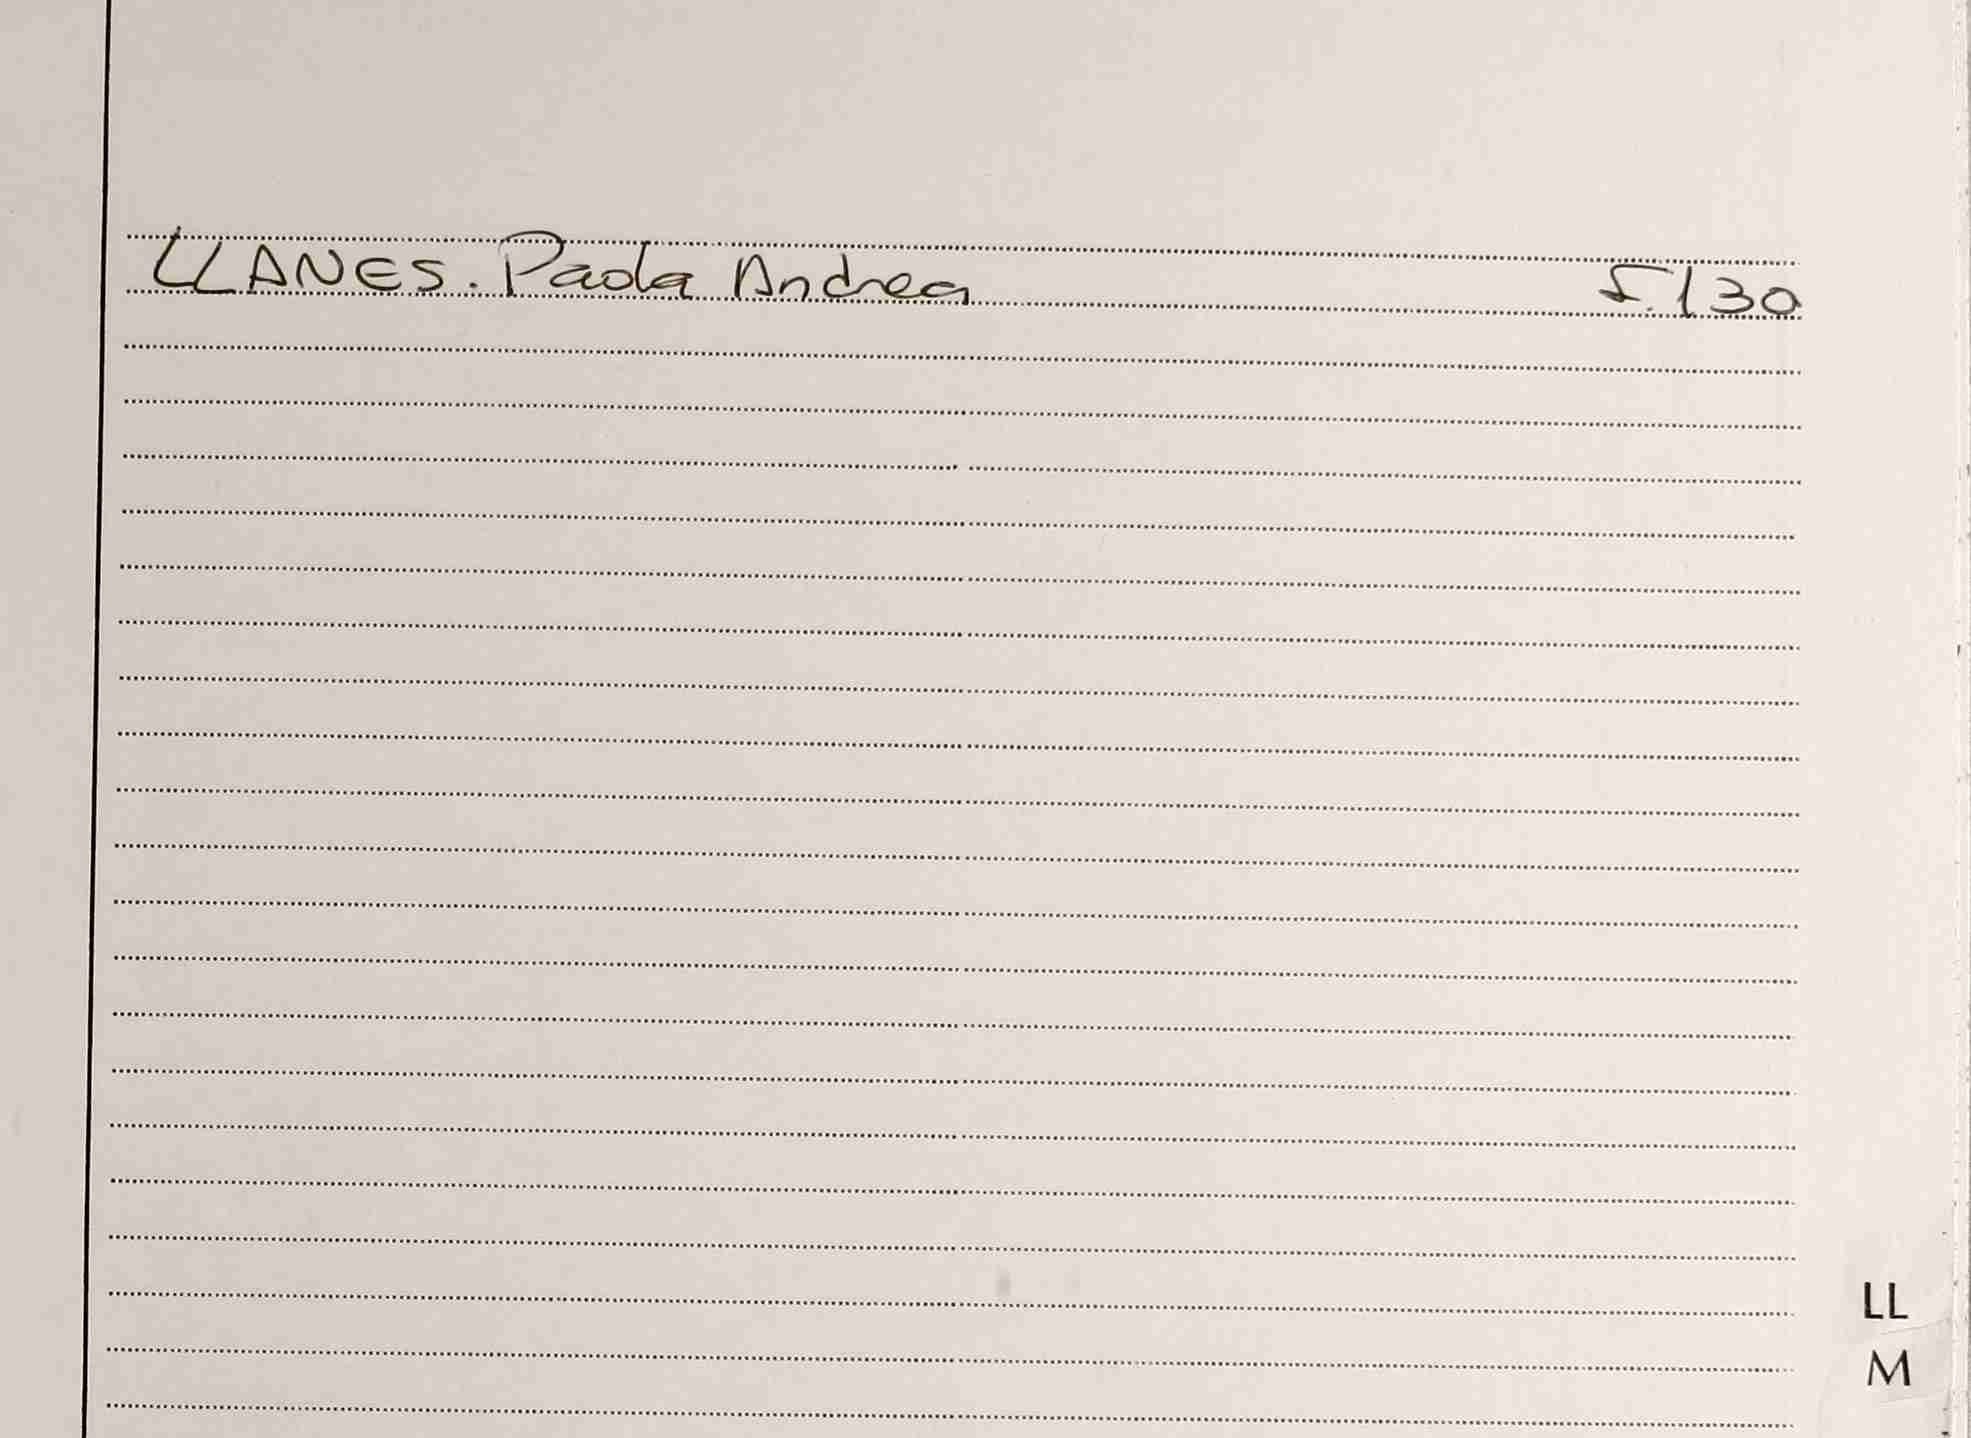 LLANES. Paola Andrea f.130
LL
M